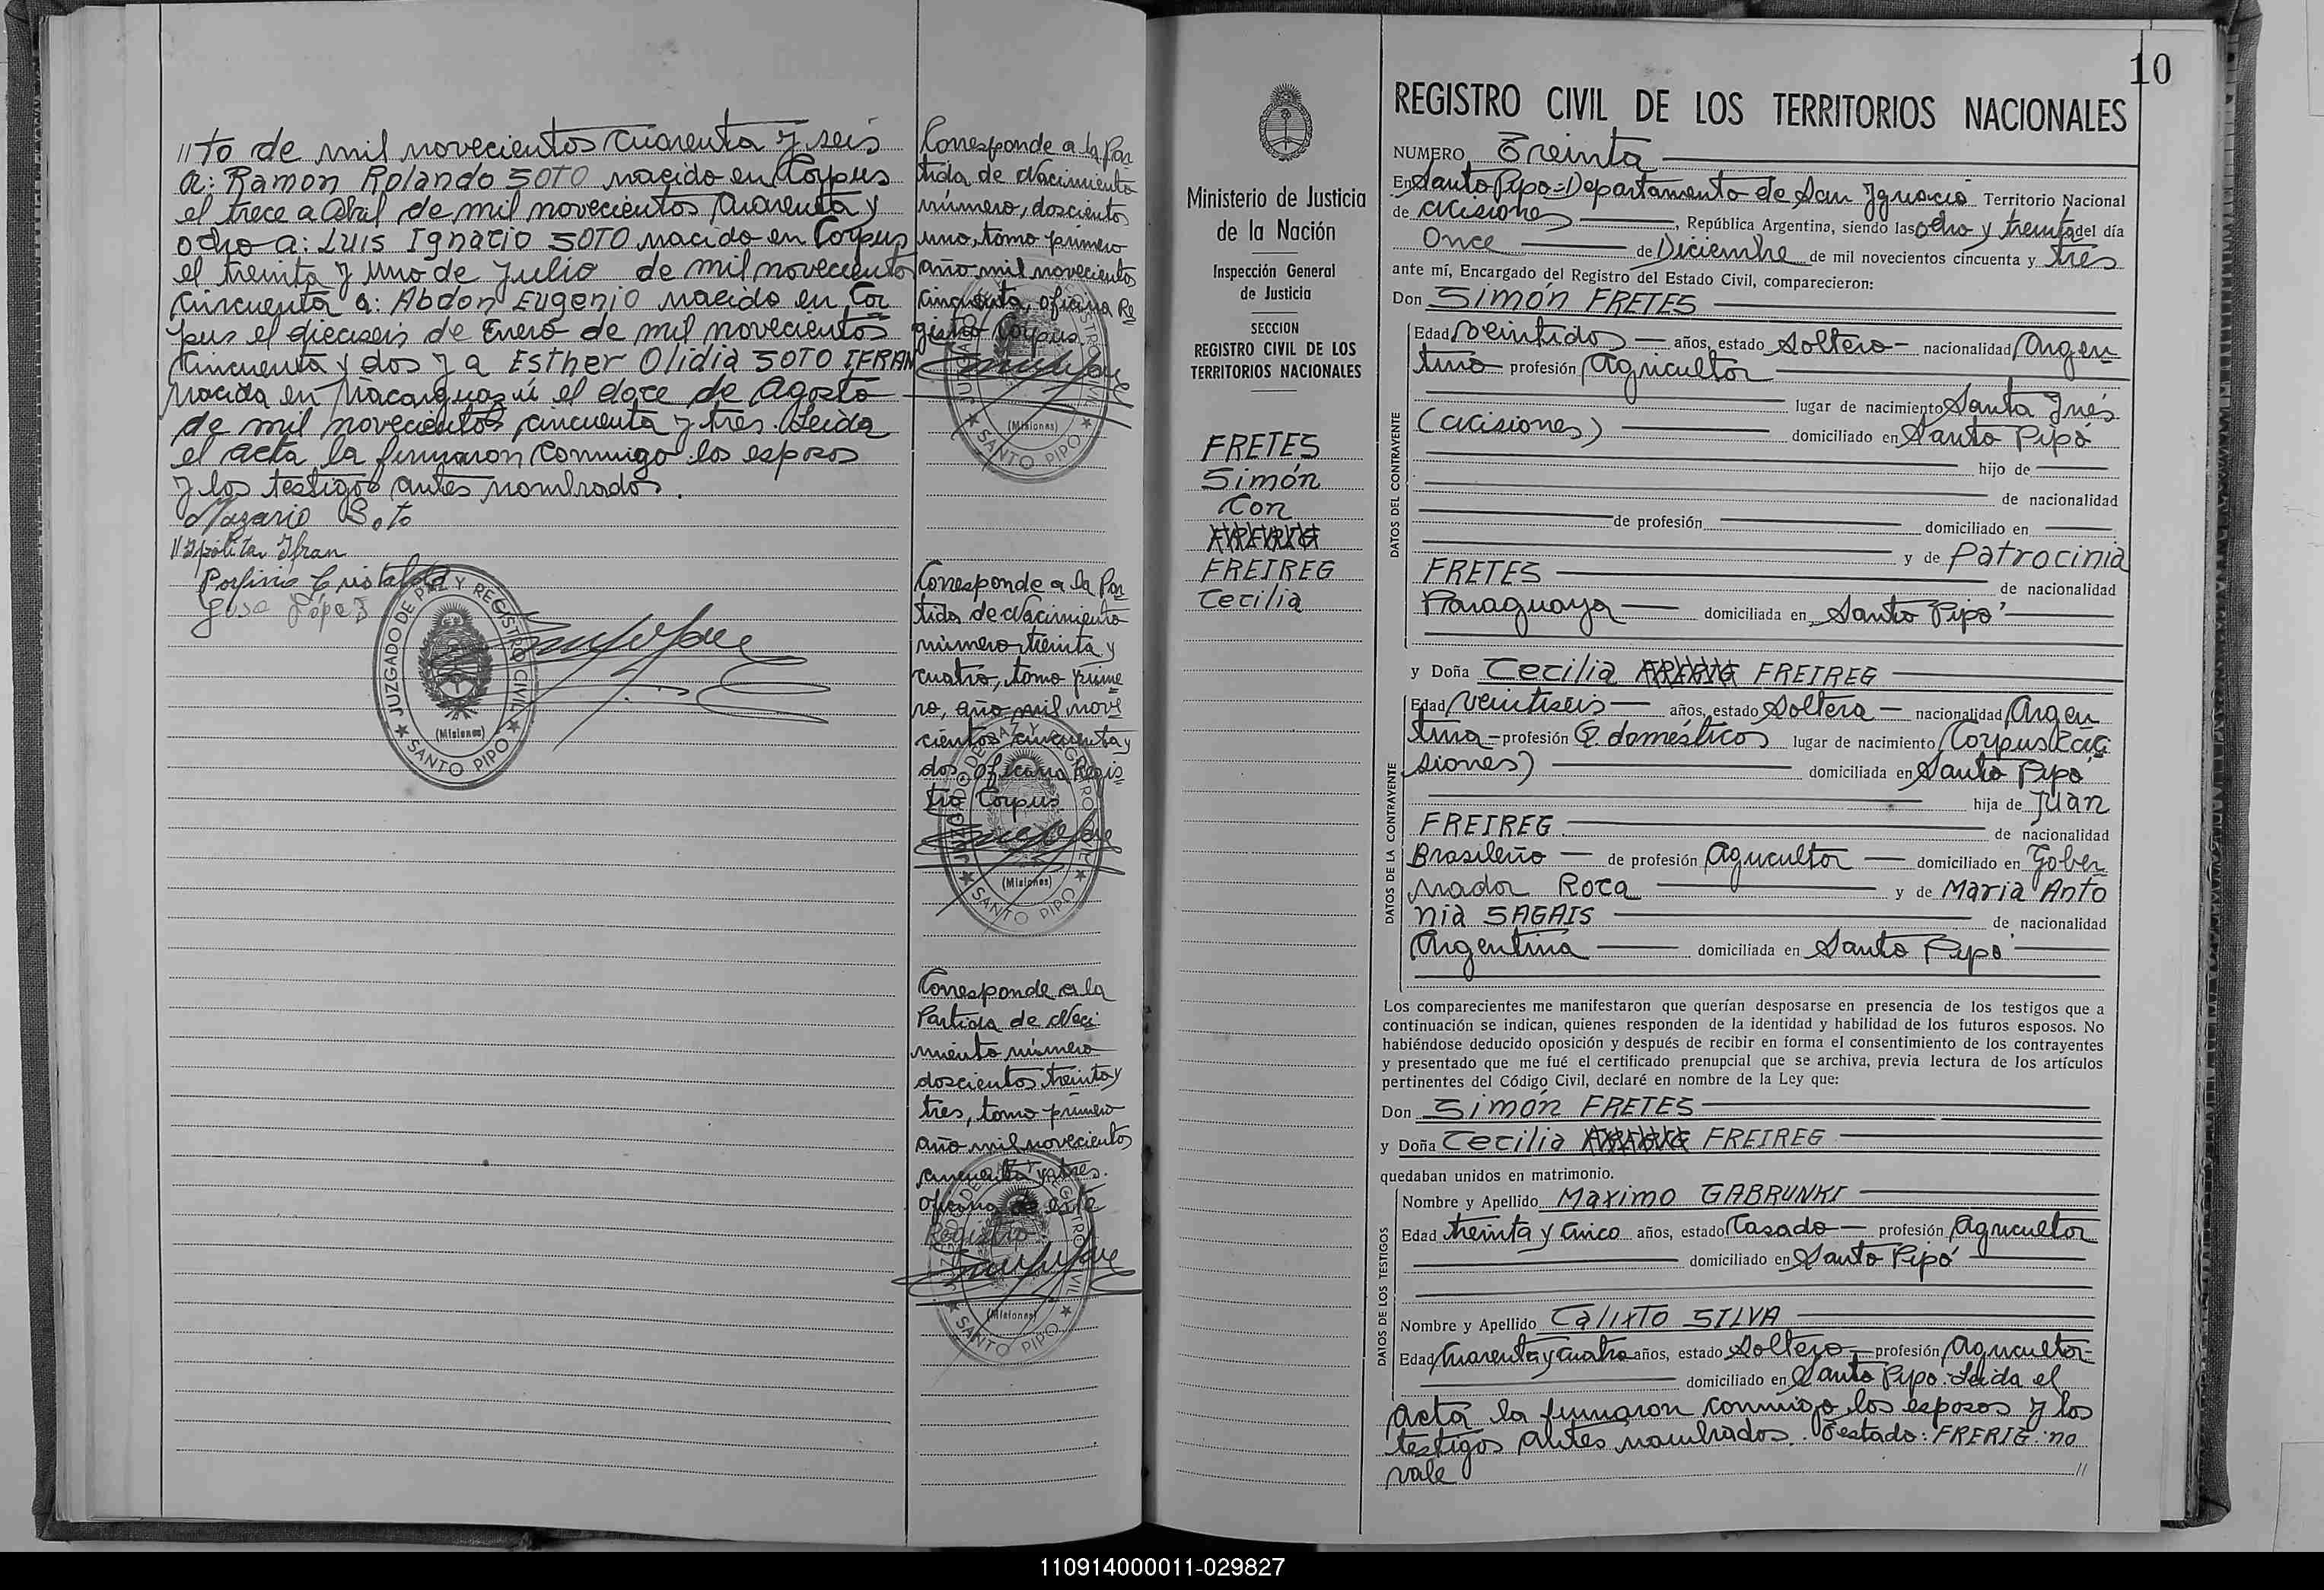 //to de mil novecientos cuarenta y seis
a: Ramon Rolando SOTO nacido en Corpus
el trece a Abril de mil novecientos cuarenta y
ocho a: Luis Ignacio SOTO nacido en Corpus
el treinta y uno de Julio de mil novecientos
cincuenta a: Abdon Eugenio nacido en Cor
pus el dieciseis de Enero de mil novecientos
cincuenta y dos y a Esther Olidia SOTO IFRAN
nacida en Ñacanguazú el doce de Agosto
de mil novecientos cincuenta y tres. Leida
el acta la firmaron conmigo los esposos
y los testigos antes nombrados.
Nazario Soto
Hipólita Ifran
Porfirio Cristaldo
José López
JUZGADO DE PAZ Y REGISTRO CIVIL
(Misiones)
★ SANTO PIPO ★
Corresponde a la Par
tida de Nacimiento
número, doscientos
uno, tomo primero
año mil novecientos
cincuenta, oficina Re
gistro Corpus.
(Misiones)
★ SANTO PIPO ★
Corresponde a la Par
tida de Nacimiento
número treinta y
cuatro, tomo prime
ro, año mil nove
cientos cincuenta y
dos, oficina Regis
tro Corpus.
(Misiones)
★ SANTO PIPO ★
Corresponde a la
Partida de Naci
miento número
doscientos treinta y
tres, tomo primero
año mil novecientos
cincuenta y tres.
Oficina de este
Registro.
(Misiones)
★ SANTO PIPO ★
10
Ministerio de Justicia
de la Nación
Inspección General
de Justicia
SECCION
REGISTRO CIVIL DE LOS
TERRITORIOS NACIONALES
FRETES
Simón
Con
FREIREG
Cecilia
REGISTRO CIVIL DE LOS TERRITORIOS NACIONALES
NUMERO Treinta
En Santo Pipo=Departamento de San Ignacio Territorio Nacional
de Misiones, República Argentina, siendo las ocho y treinta del día
Once de Diciembre de mil novecientos cincuenta y tres
ante mí, Encargado del Registro del Estado Civil, comparecieron:
Don Simón FRETES
DATOS DEL CONTRAYENTE
Edad veintidos años, estado soltero nacionalidad Argen
tino profesión Agricultor
lugar de nacimiento Santa Inés
(Misiones) domiciliado en Santo Pipó
hijo de
de nacionalidad
de profesión domiciliado en
y de Patrocinia
FRETES de nacionalidad
Paraguaya domiciliada en Santo Pipó
y Doña Cecilia FREIREG
DATOS DE LA CONTRAYENTE
Edad veintiseis años, estado Soltera nacionalidad Argen
tina profesión Q. domésticos lugar de nacimiento Corpus (Mi
siones) domiciliada en Santo Pipó
hija de Juan
FREIREG de nacionalidad
Brasileño de profesión Agricultor domiciliado en Gober
nador Roca y de Maria Anto
nia SAGAIS de nacionalidad
Argentina domiciliada en Santo Pipó
Los comparecientes me manifestaron que querían desposarse en presencia de los testigos que a
continuación se indican, quienes responden de la identidad y habilidad de los futuros esposos. No
habiéndose deducido oposición y después de recibir en forma el consentimiento de los contrayentes
y presentado que me fué el certificado prenupcial que se archiva, previa lectura de los artículos
pertinentes del Código Civil, declaré en nombre de la Ley que:
Don Simón FRETES
y Doña Cecilia FREIREG
quedaban unidos en matrimonio.
DATOS DE LOS TESTIGOS
Nombre y Apellido Maximo GABRUNKI
Edad treinta y cinco años, estado Casado profesión Agricultor
domiciliado en Santo Pipó
Nombre y Apellido Calixto SILVA
Edad Cuarenta y cuatro años, estado Soltero profesión Agricultor
domiciliado en Santo Pipó. Leida el
acta la firmaron conmigo los esposos y los
testigos antes nombrados. Testado: FRERIG. no
vale //
110914000011-029827